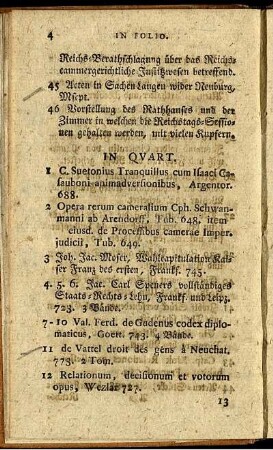 4 IN FOLIO.
Reichs-Berathschlagung über das Reichs-
cammergerichtliche Justitzwesen betreffend.
45 Acten in Sachen Langen wider Neuburg,
Mscpt.
46 Vorstellung des Rathhauses und der
Zimmer in welchen die Reichstags-Sessio-
nen gehalten werden, mit vielen Kupfern.
IN QVART.
1 C. Suetonius Tranquillus cum Isaaci Ca-
sauboni animadversionibus, Argentor.
688.
2 Opera rerum cameralium Cph. Schwan-
manni ab Arendorff, Tub. 648, item
eiusd. de Processibus camerae Imper.
judicii, Tub. 649.
3 Joh. Jac. Moser, Wahlcapitulation Kai-
ser Franz des ersten, Franks. 745.
4. 5. 6. Jac. Carl Speners vollständiges
Staats-Rechts-Lehn, Frankf. und Leipz.
723. 3 Bände.
7-10 Val. Ferd. de Gudenus codex diplo-
maticus, Goett. 743. 4 Bände.
11 de Vattel droit des gens à Neuchat.
773. 2 Tom.
12 Relationum, decisionum et votorum
opus, Wezlar 727.
13